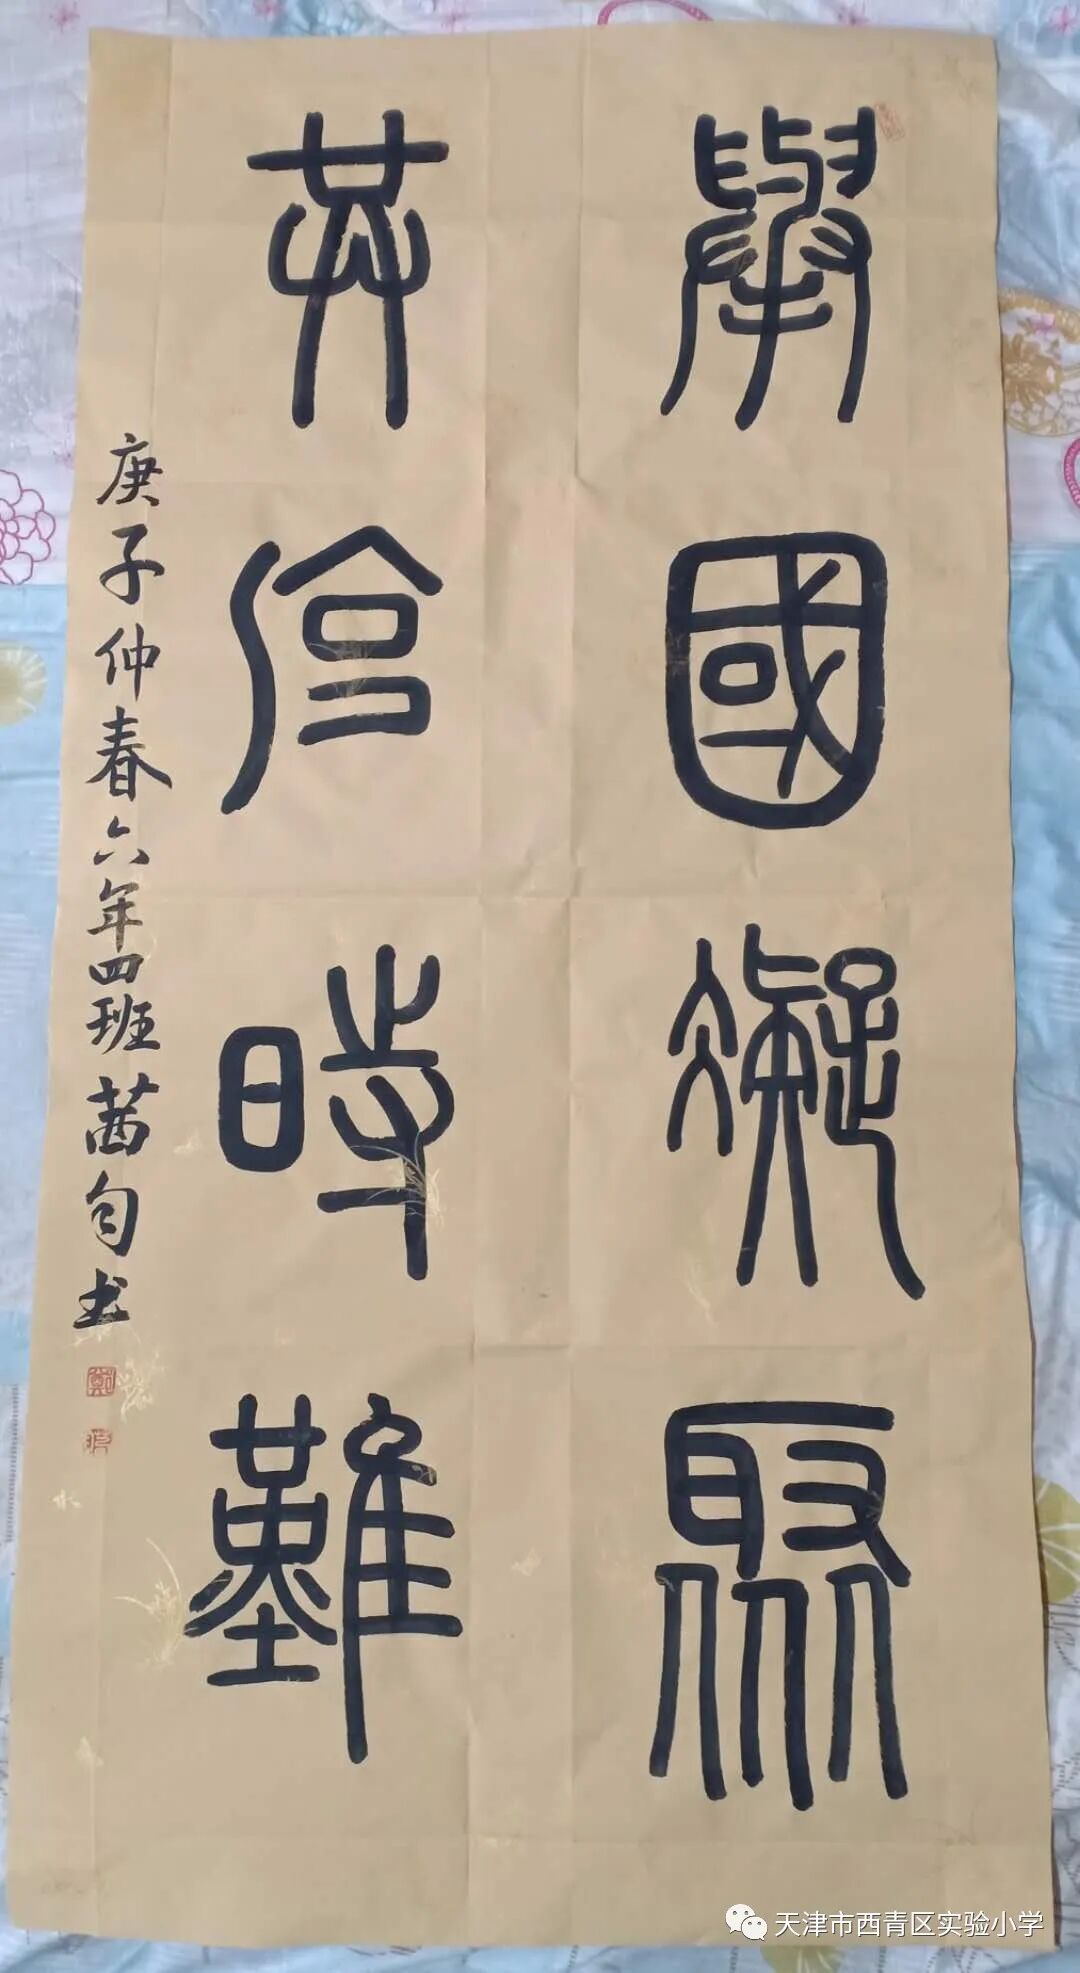 舉國凝聚
共克時難
庚子仲春六年四班茜匀书
天津市西青区实验小学